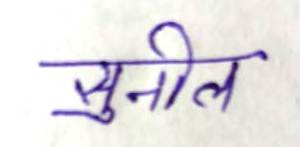 सुनील